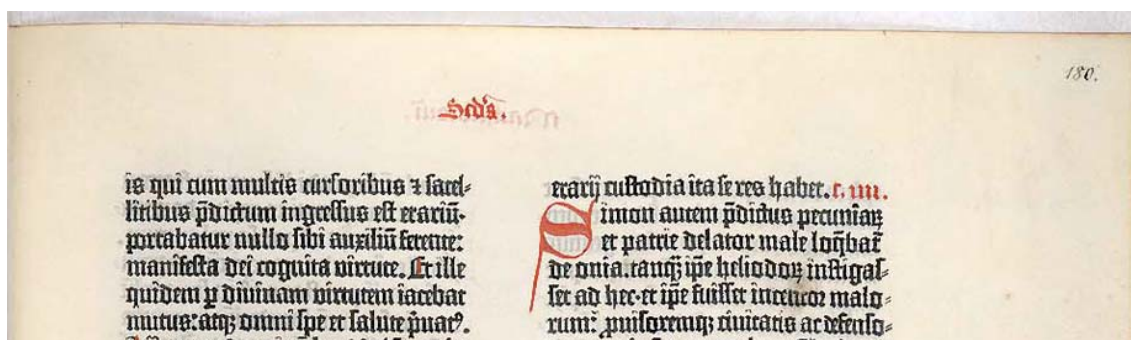 180.
Scd̄a.
is qui cum multis cursoribus ⁊ satel⸗
litibus p̄dictum ingressus est erariū·
portabatur nullo sibi auxiliū ferente:
manifesta dei cognita virtute. Et ille
quidem ꝑ divinam virtutem iacebat
mutus: atqꝫ omni spe et salute p̄uatꝰ.
erarij custodia ita se res habet. c. iiii.
Simon autem p̄dictus pecuniaꝝ
et patrie delator male loq̄bat᷑
de onia. tanqꝫ ip̄e heliodoꝝ instigas⸗
set ad hec· et ip̄e fuisset incentor malo⸗
rum: ꝓuisoremqꝫ ciuitatis ac defenso⸗